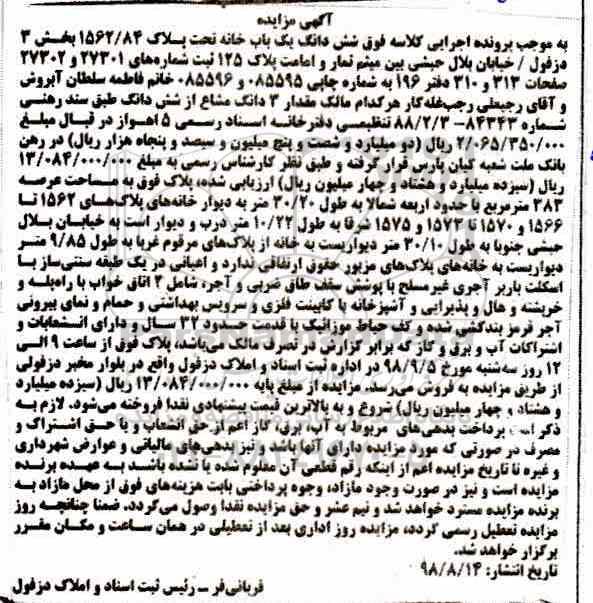 آگهی مزایده
به موجب پرونده اجرایی کلاسه فوق شش دانگ یک باب خانه تحت پلاک ۱۵۶۲/۸۴ بخش ۳
دزفول / خیابان بلال حبشی بین میثم تمار و امامت پلاک ۱۲۵ ثبت شماره‌های ۲۷۳۰۱ و ۲۷۳۰۲
صفحات ۳۱۳ و ۳۱۰ دفتر ۱۹۶ به شماره چاپی ۰۸۵۵۹۵ و ۰۸۵۵۹۶ خانم فاطمه سلطان آبروش
و آقای رجبعلی رجب‌غله‌کار هرکدام مالک مقدار ۳ دانگ مشاع از شش دانگ طبق سند رهنی
شماره ۸۴۳۴۳- ۸۸/۲/۳ تنظیمی دفترخانه اسناد رسمی ۵ اهواز در قبال مبلغ
۲/۰۶۵/۳۵۰/۰۰۰ ریال (دو میلیارد و شصت و پنج میلیون و سیصد و پنجاه هزار ریال) در رهن
بانک ملت شعبه کیان پارس قرار گرفته و طبق نظر کارشناس رسمی به مبلغ ۱۳/۰۸۴/۰۰۰/۰۰۰
ریال (سیزده میلیارد و هشتاد و چهار میلیون ریال) ارزیابی شده، پلاک فوق به مساحت عرصه
۳۸۳ مترمربع با حدود اربعه شمالا به طول ۳۰/۲۰ متر به دیوار خانه‌های پلاک‌های ۱۵۶۲ تا
۱۵۶۶ و ۱۵۷۰ تا ۱۵۷۳ و ۱۵۷۵ شرقا به طول ۱۰/۲۲ متر درب و دیوار است به خیابان بلال
حبشی جنوبا به طول ۳۰/۱۰ متر دیواریست به خانه از پلاک‌های مرقوم غربا به طول ۹/۸۵ متر
دیواریست به خانه‌های پلاک‌های مزبور حقوق ارتفاقی ندارد و اعیانی در یک طبقه سنتی‌ساز با
اسکلت باربر آجری غیرمسلح با پوشش سقف طاق ضربی و آجر، شامل ۳ اتاق خواب با راه‌پله و
خرپشته و هال و پذیرایی و آشپزخانه با کابینت فلزی و سرویس بهداشتی و حمام و نمای بیرونی
آجر قرمز بندکشی شده و کف حیاط موزائیک با قدمت حدود ۳۲ سال و دارای انشعابات و
اشتراکات آب و برق و گاز که برابر گزارش در تصرف مالک می‌باشد، پلاک فوق از ساعت ۹ الی
۱۲ روز سه‌شنبه مورخ ۹۸/۹/۵ در اداره ثبت اسناد و املاک دزفول واقع در بلوار مخبر دزفولی
از طریق مزایده به فروش می‌رسد. مزایده از مبلغ پایه ۱۳/۰۸۴/۰۰۰/۰۰۰ ریال (سیزده میلیارد
و هشتاد و چهار میلیون ریال) شروع و به بالاترین قیمت پیشنهادی نقدا فروخته می‌شود. لازم به
ذکر است پرداخت بدهی‌های مربوط به آب، برق، گاز اعم از حق انشعاب و یا حق اشتراک و
مصرف در صورتی که مورد مزایده دارای آنها باشد و نیز بدهی‌های مالیاتی و عوارض شهرداری
و غیره تا تاریخ مزایده اعم از اینکه رقم قطعی آن معلوم شده یا نشده باشد به عهده برنده
مزایده است و نیز در صورت وجود مازاد، وجوه پرداختی بابت هزینه‌های فوق از محل مازاد به
برنده مزایده مسترد خواهد شد و نیم عشر و حق مزایده نقدا وصول می‌گردد. ضمنا چنانچه روز
مزایده تعطیل رسمی گردد، مزایده روز اداری بعد از تعطیلی در همان ساعت و مکان مقرر
برگزار خواهد شد.
تاریخ انتشار: ۹۸/۸/۱۴
قربانی‌فر ـ رئیس ثبت اسناد و املاک دزفول